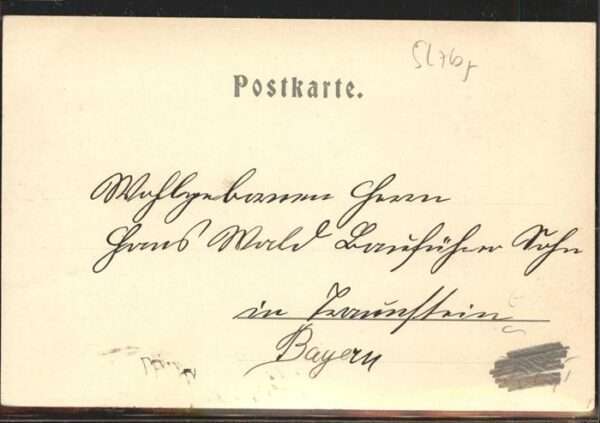 Postkarte.
Wohlgeboren Herrn
Hans Wald Bauführer Sohn
in Traunstein
Bayern